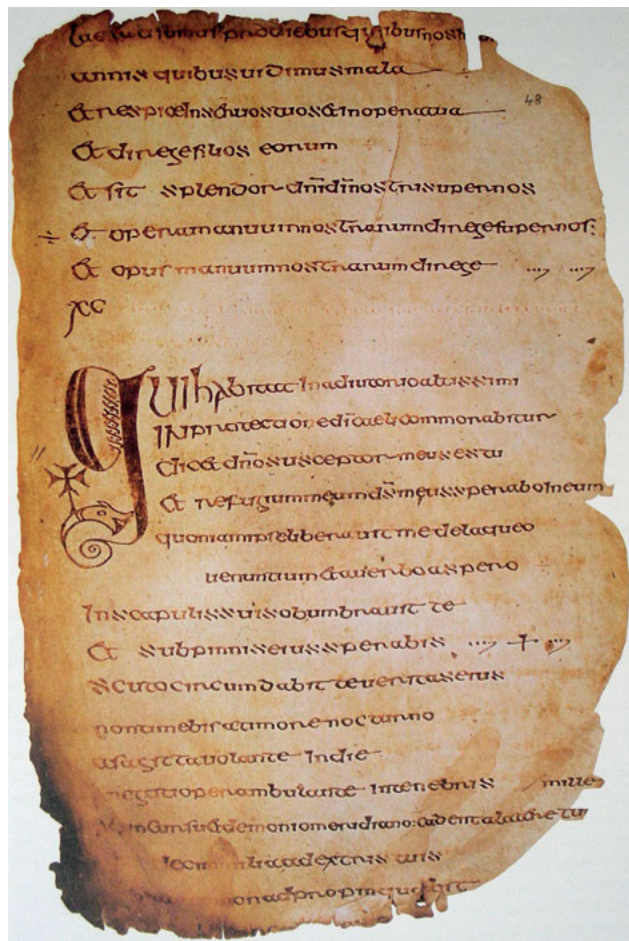 laetati sumus pro diebus quibus nos
annis quibus uidimus mala
48
Et respice in seruos tuos & in opera tua
Et direge filios eorum
Et sit splendor dn̄i dī nostri super nos
÷ Et opera manuum nostrarum direge super nos:
Et opus manuum nostrarum direge
XC
Qui habitat in adiutorio altissimi
IN protectione dī caeli commorabitur
Dicet dn̄o susceptor meus es tu
Et refugium meum ds̄ meus sperabo in eum
quoniam ipse liberauit me de laqueo
uenantium & a uerbo aspero
In scapulis suis obumbrauit te
Et sub pinnis eius sperabis
scuto circumdabit te ueritas eius
non timebis a timore nocturno
a sagitta uolante in die
negotio perambulante in tenebris / mille
incursu & demonio meridiano: cadent a latere tu
decem milia a dextris tuis
non adpropinquabit